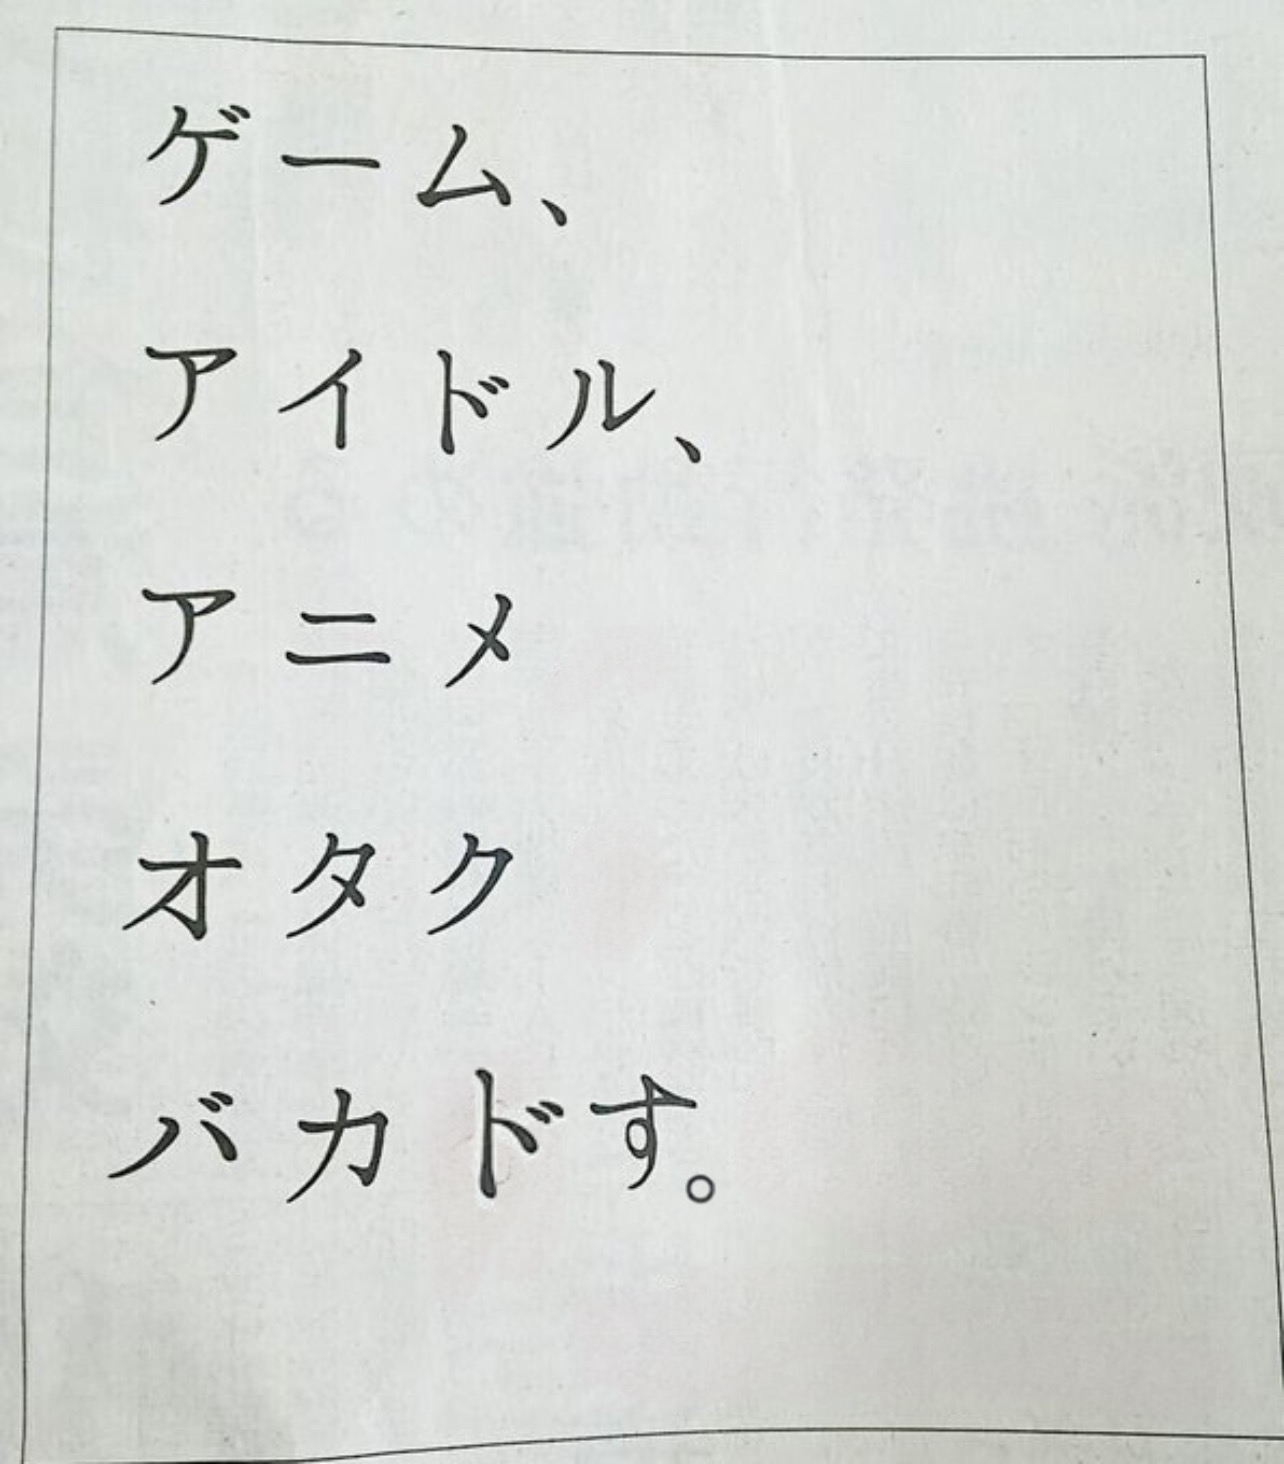 ゲーム、
アイドル、
アニメ
オタク
バカドす。